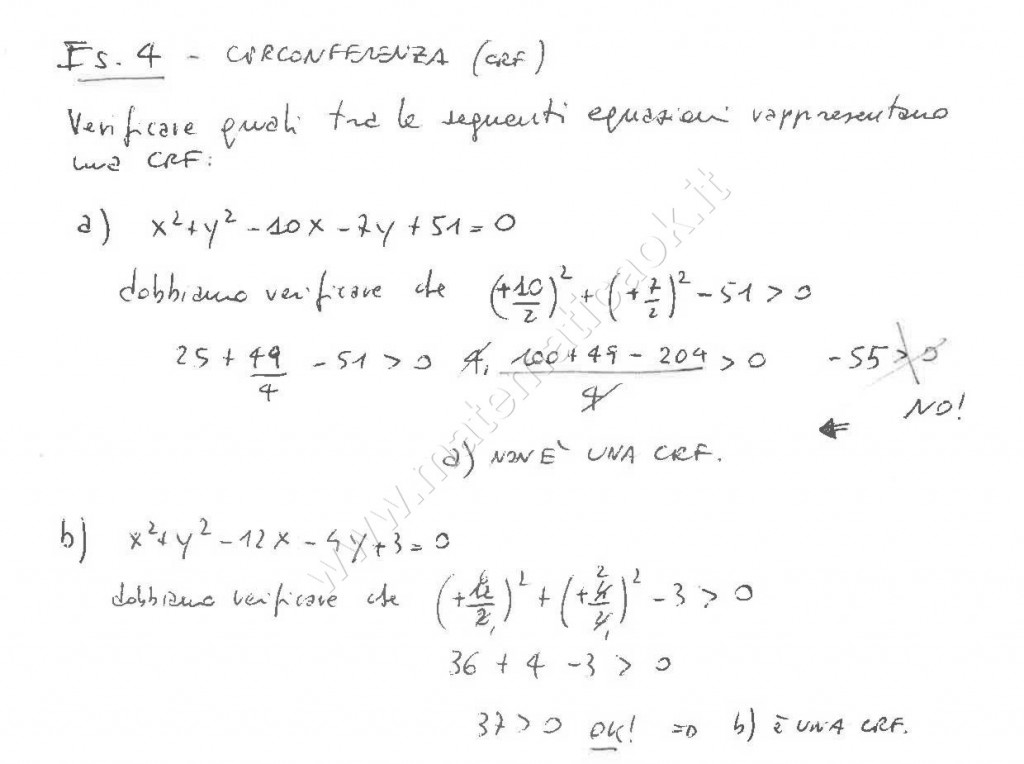 Es. 4 - CIRCONFERENZA (CRF)
Verificare quali tra le seguenti equazioni rappresentano
una CRF:
a) x²+y²-10x-7y+51=0
dobbiamo verificare che (+10/2)² + (+7/2)² - 51 > 0
25 + 49/4 - 51 > 0 4. (100+49-204)/4 > 0 -55 > 0
NO!
⇐
a) NON È UNA CRF.
b) x²+y²-12x-4y+3=0
dobbiamo verificare che (+12/2)² + (+4/2)² - 3 > 0
36 + 4 - 3 > 0
37 > 0 OK! ⇒ b) È UNA CRF.
www.matematicaok.it